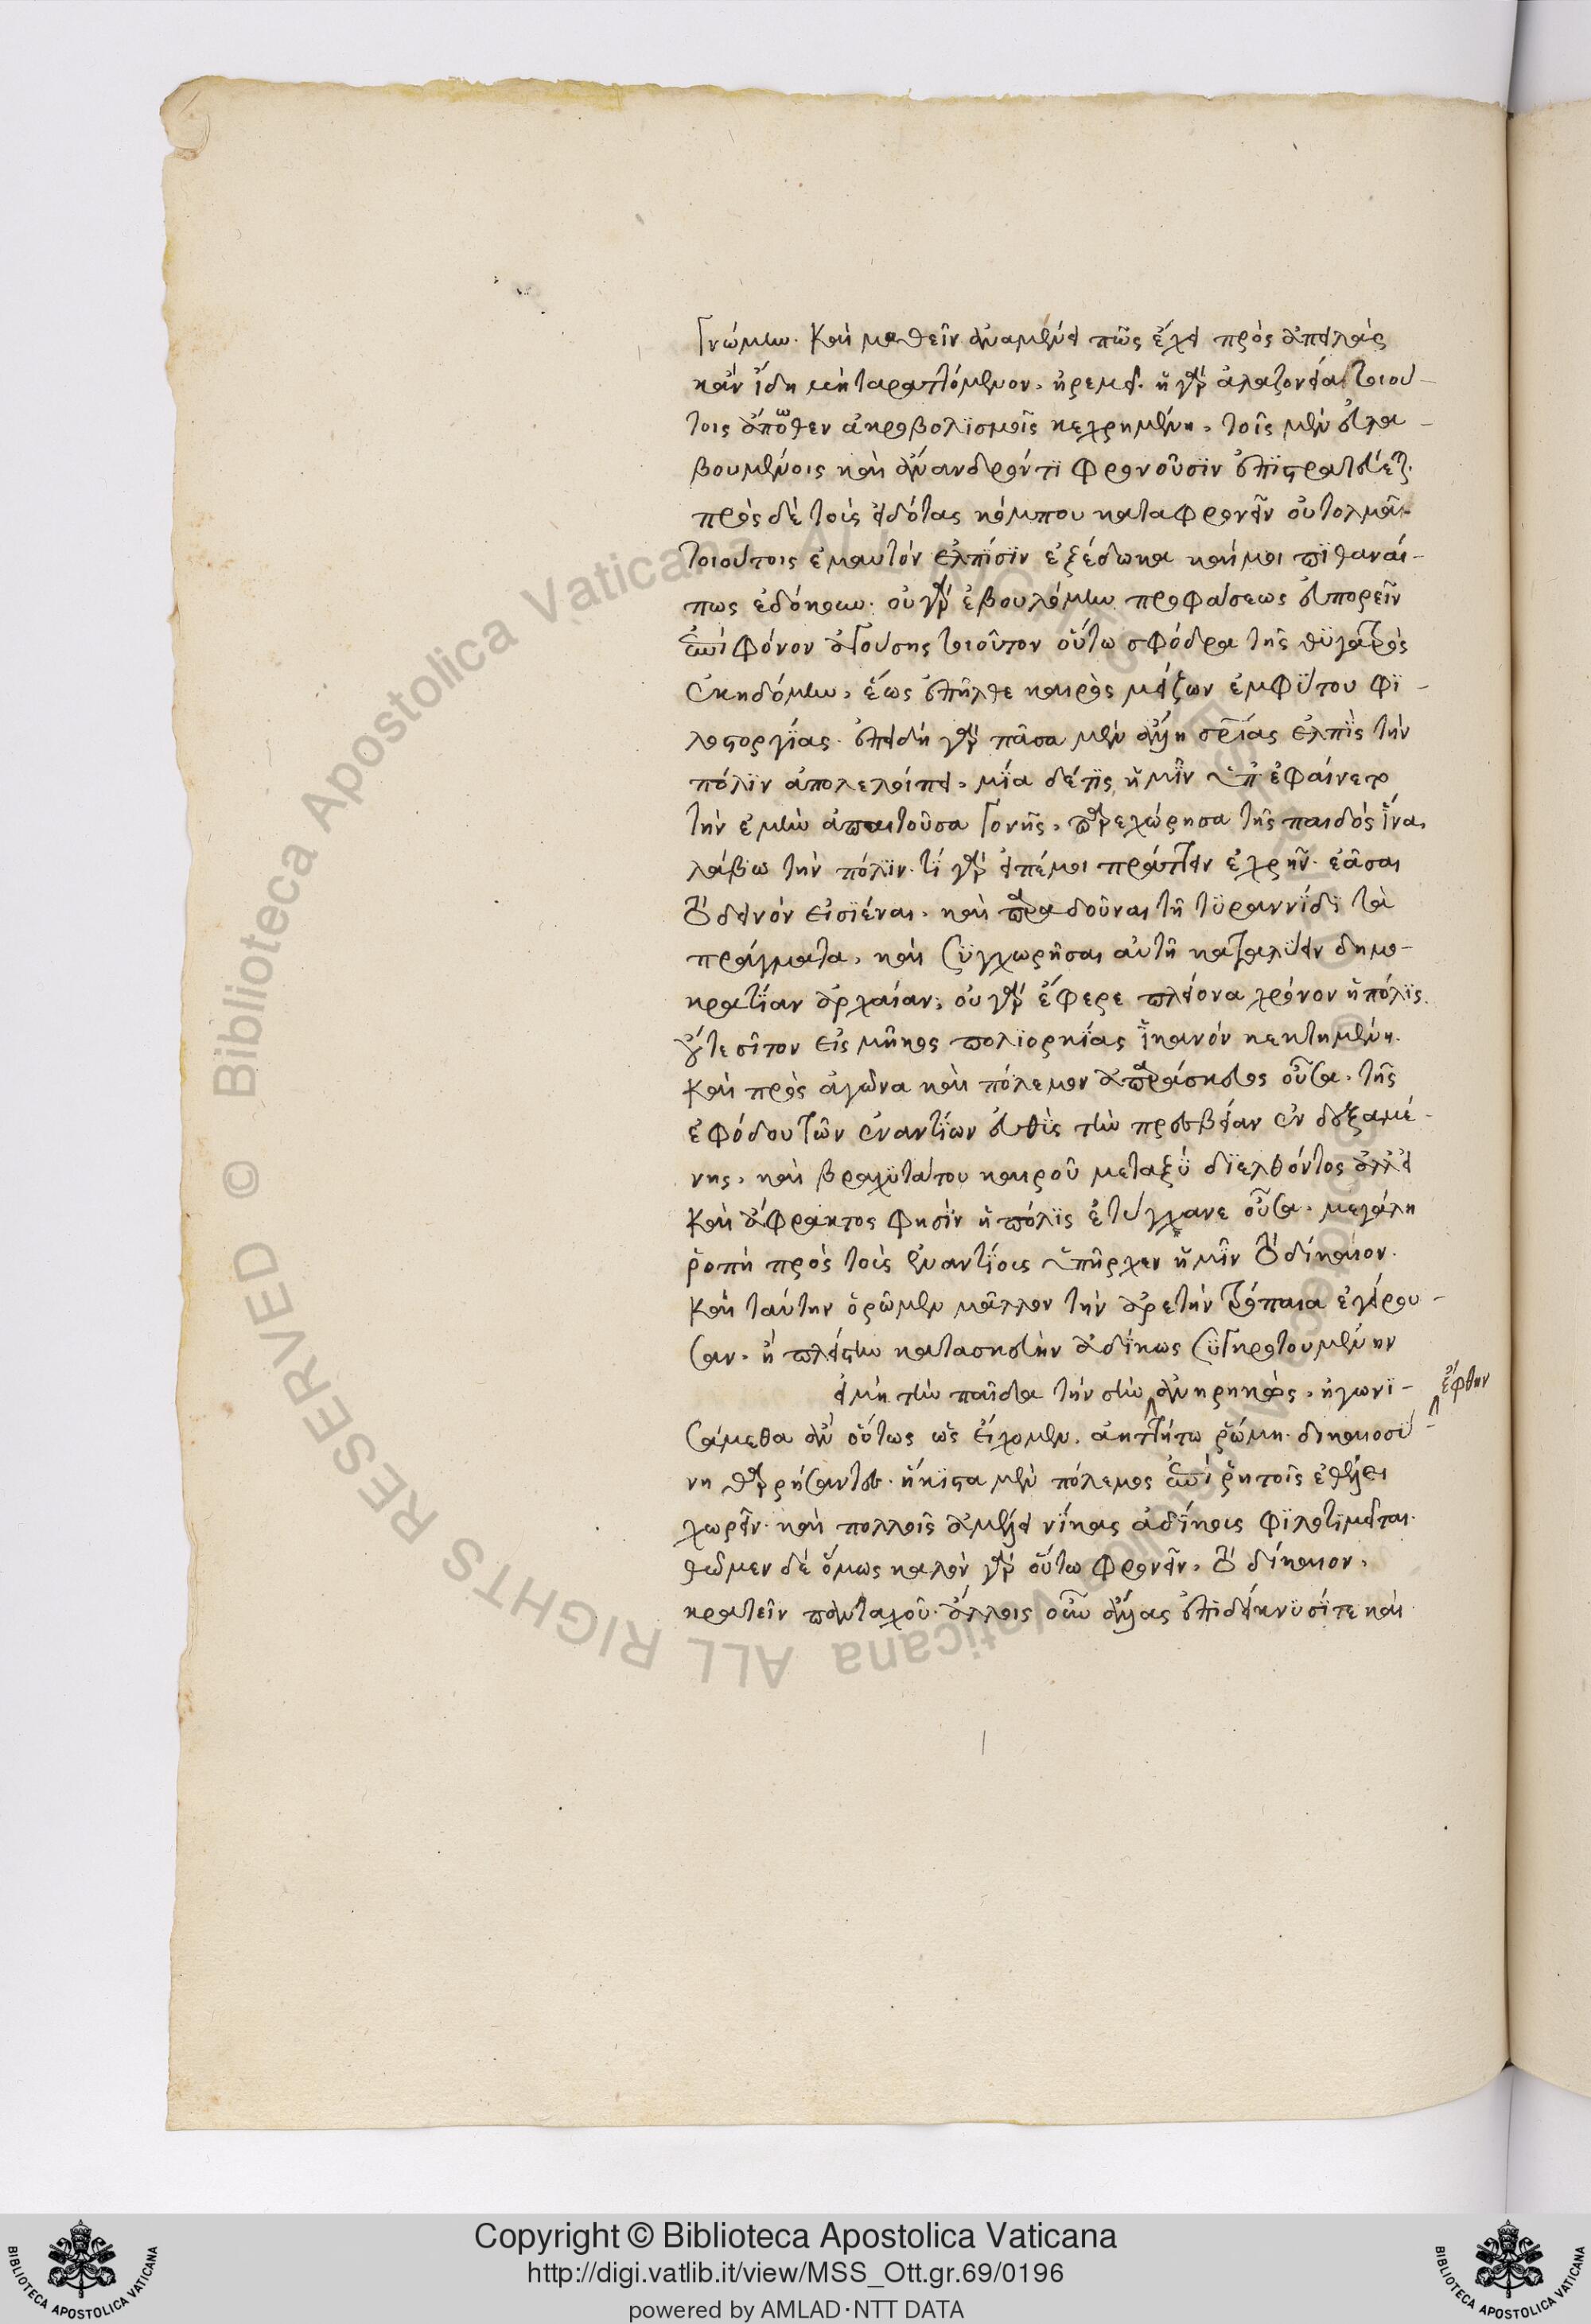 γνώμην. καὶ μαθεῖν ἀναμένει πῶς ἔχει πρὸς ἀπειλὰς
κἂν ἴδῃ μὴ ταραττόμενον, ἠρεμεῖ. ἡ γὰρ ἀλαζονεία τοιού-
τοις ἄπωθεν ἀκροβολισμοῖς κεχρημένη, τοῖς μὲν εὐλα-
βουμένοις καὶ ἄνανδρόν τι φρονοῦσιν ἐπιστρατεύεται.
πρὸς δὲ τοὺς εἰδότας κόμπου καταφρονεῖν οὐ τολμᾶ.
τοιούτοις ἐμαυτὸν ἐλπίσιν ἐξέδωκα καί μοι πιθαναί
πως ἐδόκουν. οὐ γὰρ ἐβουλόμην προφάσεως εὐπορεῖν
ἐπὶ φόνον ἀγούσης τοιοῦτον οὕτω σφόδρα τῆς θυγατρὸς
ἐκηδόμην, ἕως ἐπῆλθε καιρὸς μείζων ἐμφύτου φι-
λοστοργίας. ἐπειδὴ γὰρ πᾶσα μὲν ἄλλη σωτηρίας ἐλπὶς τὴν
πόλιν ἀπολελοίπει, μία δέ τις ἡμῖν ὑπεφαίνετο
τὴν ἐμὴν ἀπαιτοῦσα γονῆς, παρεχώρησα τῆς παιδὸς ἵνα
λάβω τὴν πόλιν. τί γὰρ εἰπέ μοι πράττειν ἐχρῆν. ἐᾶσαι
τὸ δεινὸν εἰσιέναι, καὶ παραδοῦναι τῇ τυραννίδι τὰ
πράγματα, καὶ συγχωρῆσαι αὐτῇ καταλύειν δημο-
κρατίαν ἀρχαίαν; οὐ γὰρ ἔφερε πλείονα χρόνον ἡ πόλις.
οὔτε σῖτον εἰς μῆκος πολιορκίας ἱκανὸν κεκτημένη.
καὶ πρὸς ἀγῶνα καὶ πόλεμον ἀπαράσκευος οὖσα. τῆς
ἐφόδου τῶν ἐναντίων εὐθὺς τὴν πρεσβείαν ἐκδεξαμέ-
νης, καὶ βραχυτάτου καιροῦ μεταξὺ διελθόντος ἀλλ' εἰ
καὶ ἄφρακτος φησὶν ἡ πόλις ἐτύγχανε οὖσα. μεγάλη
ῥοπὴ πρὸς τοὺς ἐναντίους ὑπῆρχεν ἡμῖν τὸ δίκαιον.
καὶ ταύτην ὁρῶμεν μᾶλλον τὴν ἀρετὴν τρόπαια ἐγείρου-
σαν, ἢ πλείστην κατασκευὴν ἀδίκως συγκροτουμένην
εἰ μὴ τὴν παῖδα τὴν σὴν ἀνῃρηκὼς, ἠγωνι-
ἔφθην
σάμεθα ἂν οὕτως ὡς εἴχομεν. ἀηττήτῳ ῥώμῃ δικαιοσύ-
νῃ θαρρήσαντες. ἥκιστα μὲν πόλεμος ἐπὶ ῥητοῖς ἐθέλει
χωρεῖν. καὶ πολλοῖς ἀμέλει νίκας ἀδίκοις φιλοτιμεῖται.
θῶμεν δὲ ὅμως καλὸν γὰρ οὕτω φρονεῖν, τὸ δίκαιον,
κρατεῖν πανταχοῦ. ἄλλοις οὖν ἄλλας ἐπιδείκνυσί τε καὶ